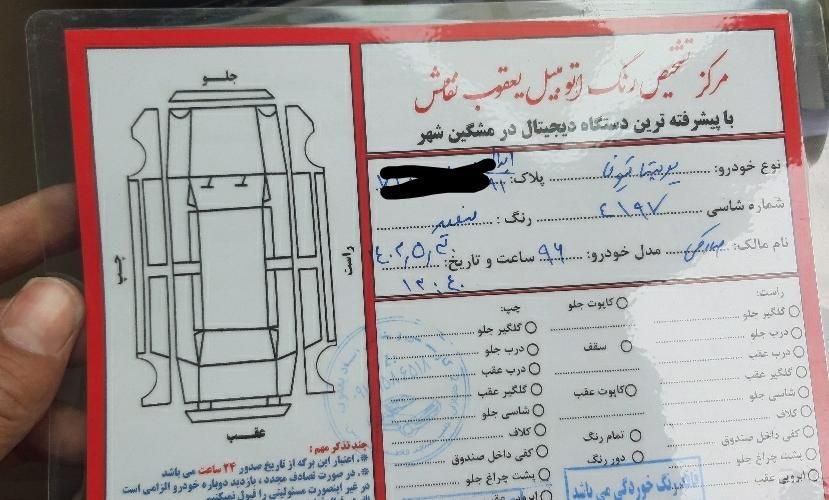 مرکز تشخیص رنگ اتومبیل یعقوب نقاش
با پیشرفته ترین دستگاه دیجیتال در مشگین شهر
نوع خودرو: پلاک:
شماره شاسی ۴۱۹۷ رنگ: سفید
نام مالک: مدل خودرو: ۹۶ ساعت و تاریخ:
۱۲:۴۰
جلو
راست
چپ
عقب
راست:
گلگیر جلو
درب جلو
درب عقب
گلگیر عقب
شاسی جلو
کلاف
کفی داخل صندوق
پشت چراغ جلو
ابرویی عقب
کاپوت جلو
سقف
کاپوت عقب
تمام رنگ
دور رنگ
چپ:
گلگیر جلو
درب جلو
درب عقب
گلگیر عقب
شاسی جلو
کلاف
کفی داخل صندوق
پشت چراغ جلو
فاقد رنگ خوردگی می باشد
چند تذکر مهم:
*. اعتبار این برگه از تاریخ صدور ۲۴ ساعت می باشد
*. در صورت تصادف مجدد، بازدید دوباره خودرو الزامی است
در غیر اینصورت مسئولیتی را قبول نمیکنیم